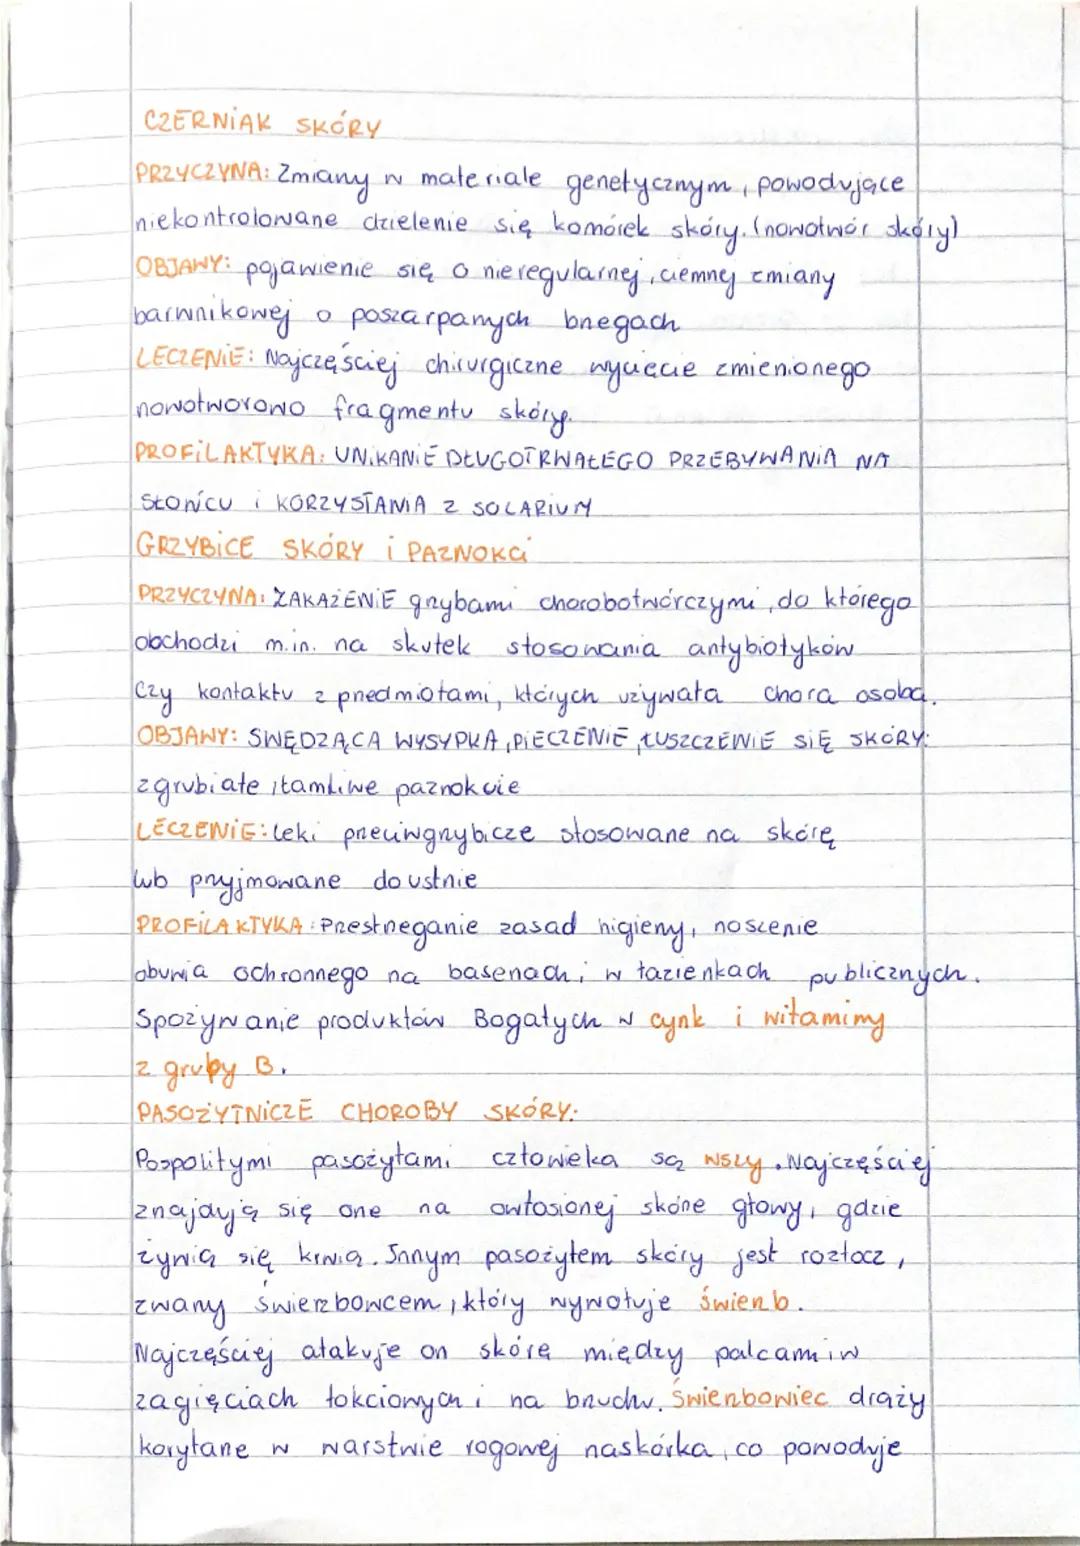 CZERNIAK SKÓRY
PRZYCZYNA: Zmiany w materiale genetycznym, powodujące
niekontrolowane dzielenie się komórek skóry. (nowotwór skóry)
OBJAWY: pojawienie się o nieregularnej, ciemnej zmiany
barwnikowej o poszarpanych brzegach
LECZENIE: Najczęściej chirurgiczne wycięcie zmienionego
nowotworowo fragmentu skóry.
PROFILAKTYKA: UNIKANIE DŁUGOTRWAŁEGO PRZEBYWANIA NA
SŁOŃCU i KORZYSTANIA Z SOLARIUM
GRZYBICE SKÓRY i PAZNOKCI
PRZYCZYNA: ZAKAŻENIE grzybami chorobotwórczymi, do którego
obchodzi m.in. na skutek stosowania antybiotyków
Czy kontaktu z przedmiotami, których używała chora osoba.
OBJAWY: SWĘDZĄCA WYSYPKA, PIECZENIE, ŁUSZCZENIE SIĘ SKÓRY:
zgrubiałe i łamliwe paznokcie
LECZENIE: leki przeciwgrzybicze stosowane na skórę
lub przyjmowane doustnie
PROFILAKTYKA: Przestrzeganie zasad higieny, noszenie
obuwia ochronnego na basenach i w łazienkach publicznych.
Spożywanie produktów Bogatych w cynk i witaminy
z grupy B.
PASOŻYTNICZE CHOROBY SKÓRY:
Pospolitymi pasożytami człowieka są wszy. Najczęściej
znajdują się one na owłosionej skórze głowy, gdzie
żywią się krwią. Innym pasożytem skóry jest roztocz,
zwany świerzbowcem, który wywołuje świerzb.
Najczęściej atakuje on skórę między palcami i w
zagięciach łokciowych i na brzuchu. Świerzbowiec drąży
korytarze w warstwie rogowej naskórka, co powoduje